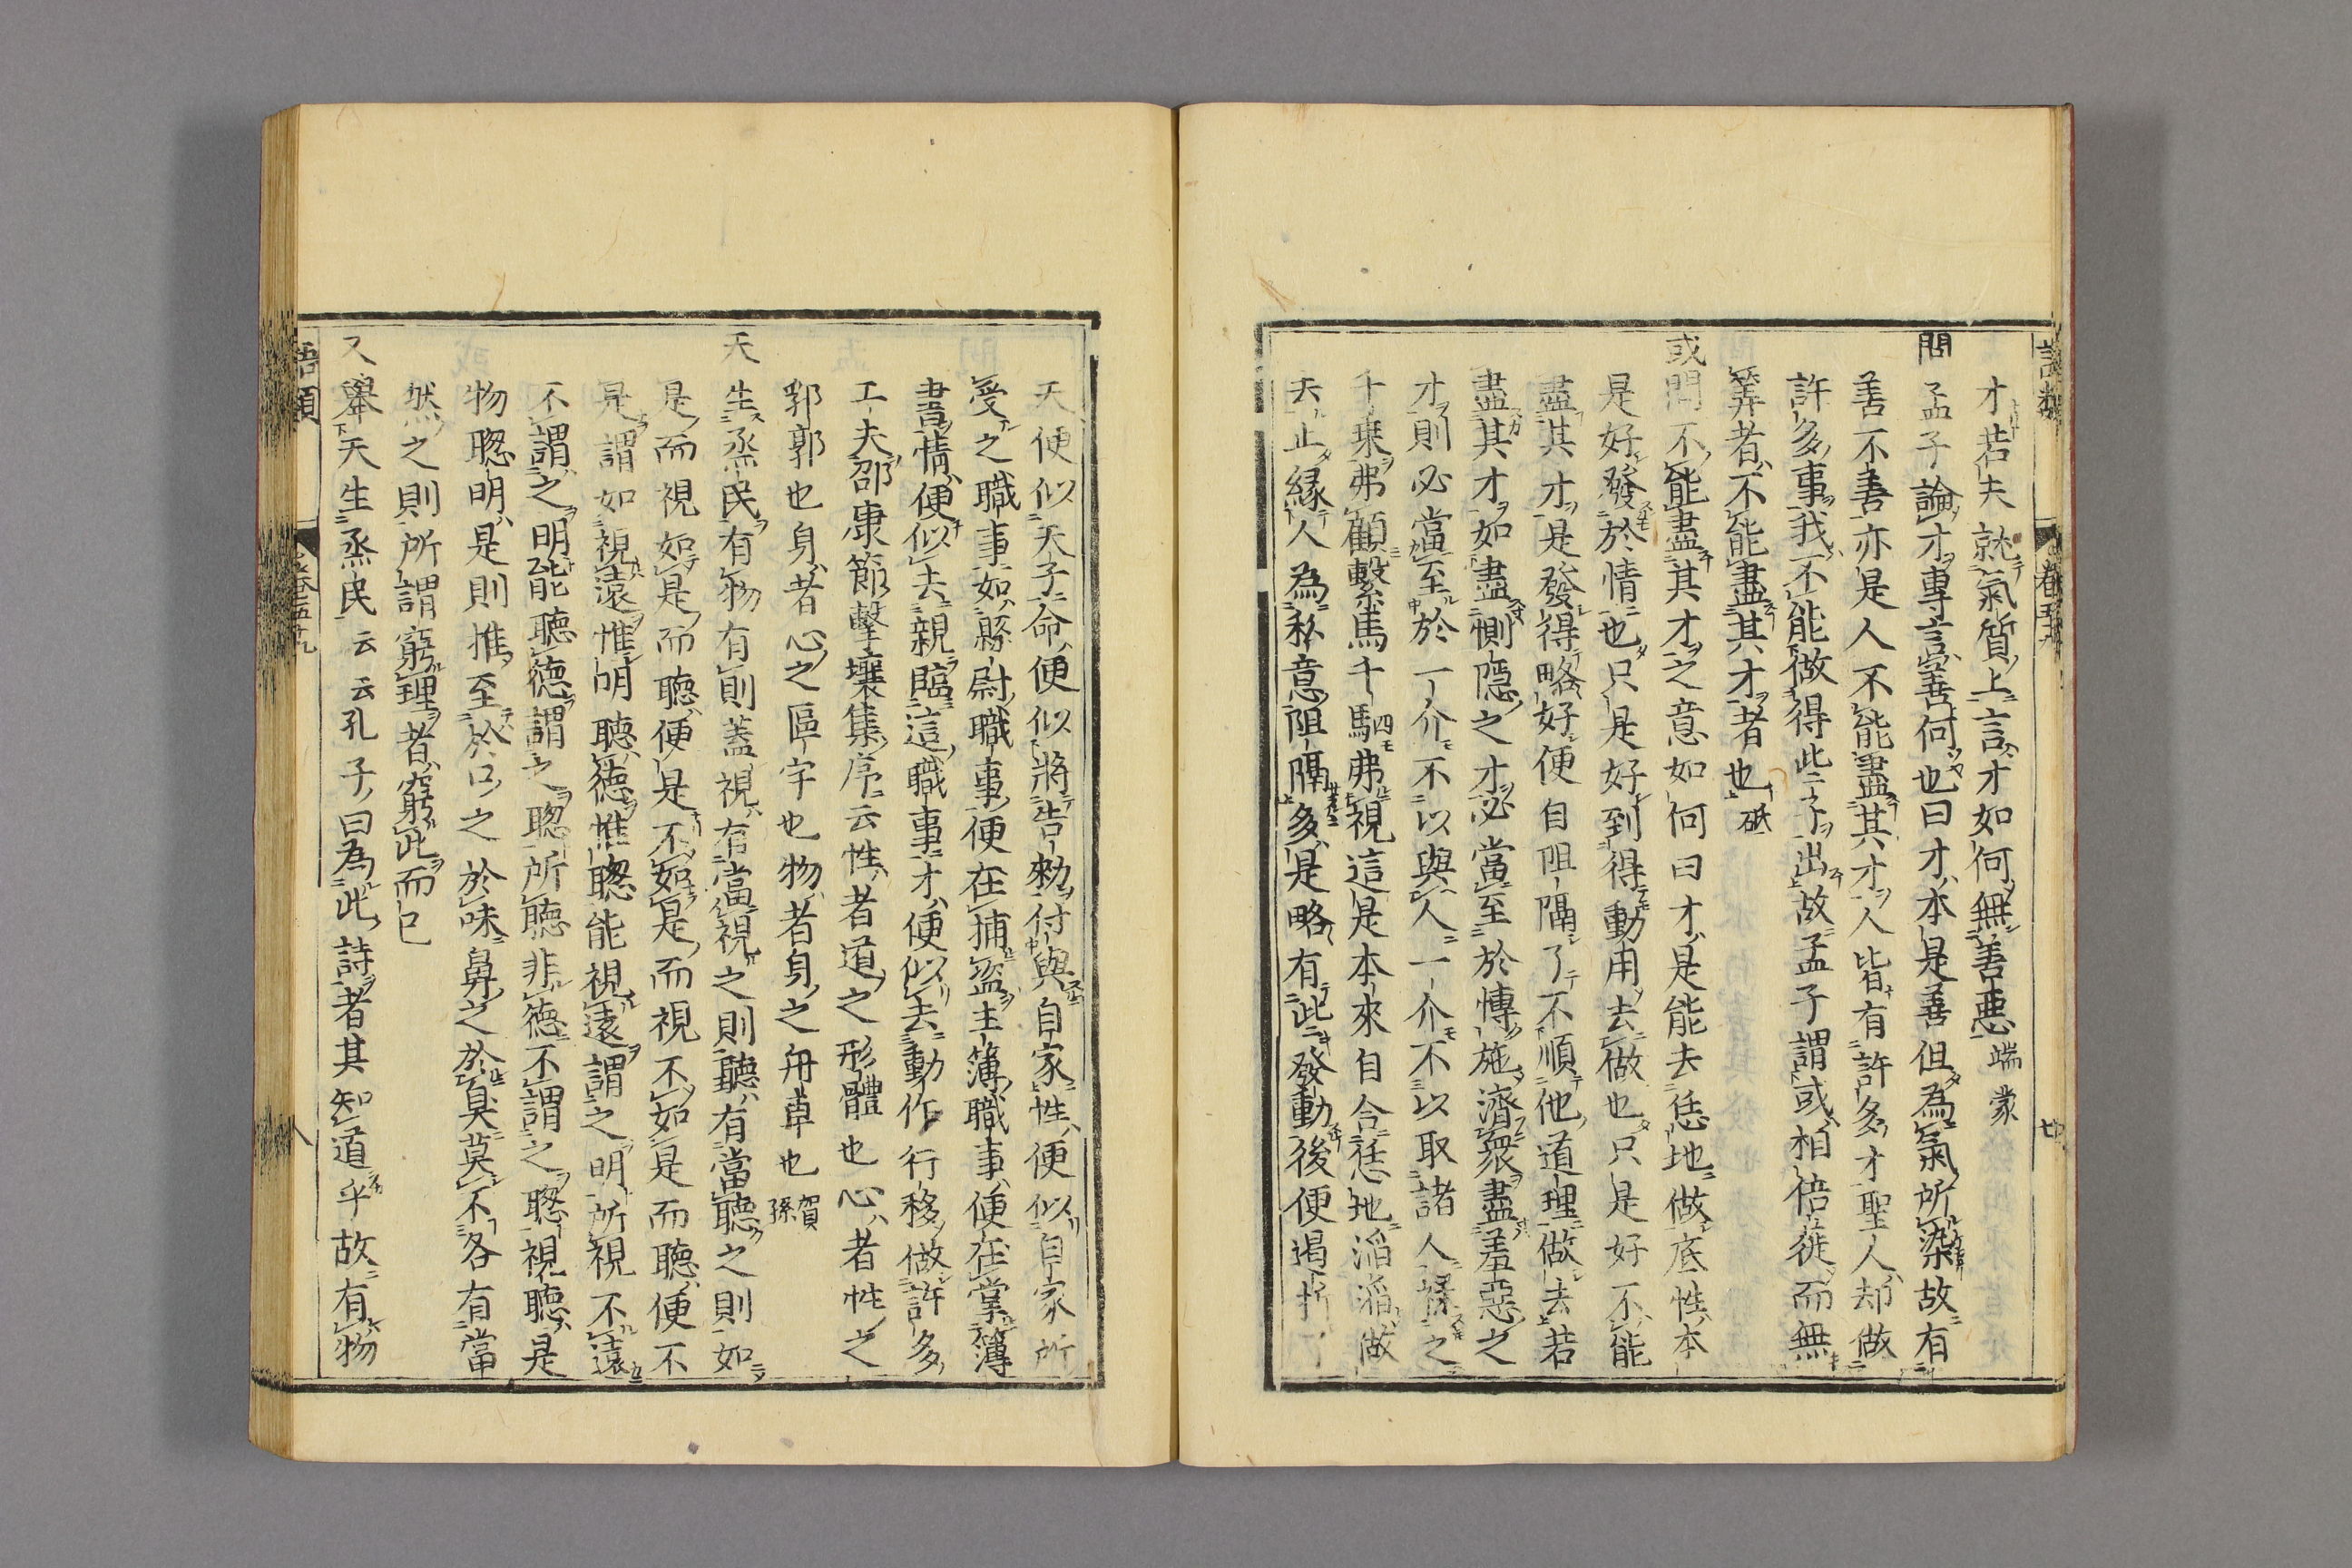 語類
卷五十九
廿
才若夫就氣質上言才如何無善惡端蒙
問孟子論才專言善何也曰才本是善但為氣所染故有
善不善亦是人不能盡其才人皆有許多才聖人却做
許多事我不能做得此二子出故孟子謂或相倍蓰而無
筭者不能盡其才者也砥
或問不能盡其才之意如何曰才是能去恁地做底性本
是好發於情也只是好到得動用去做也只是好不能
盡其才是發得略好便自阻隔了不順他道理做去若
盡其才如盡惻隱之才必當至於博施濟衆盡羞惡之
才則必當至於一介不以與人一介不以取諸人祿之
千乘弗顧繫馬千駟弗視這是本來自合恁地滔滔做
去止緣人為私意阻隔多是略有此發動後便遏折了
天便似天子命便似將告勑付與自家性便似自家所
受之職事如縣尉職事便在捕盜主簿職事便在掌簿
書情便似去親臨這職事才便似去動作行移做許多
工夫邵康節擊壤集序云性者道之形體也心者性之
郛郭也身者心之區宇也物者身之舟車也賀孫
天生烝民有物有則蓋視有當視之則聽有當聽之則如
是而視如是而聽便是不如是而視不如是而聽便不
是謂如視遠惟明聽德惟聰能視遠謂之明所視不遠
不謂之明能聽德謂之聰所聽非德不謂之聰視聽是
物聰明是則推至於口之於味鼻之於臭莫不各有當
然之則所謂窮理者窮此而已
又舉天生烝民云云孔子曰為此詩者其知道乎故有物
語類
卷五十九